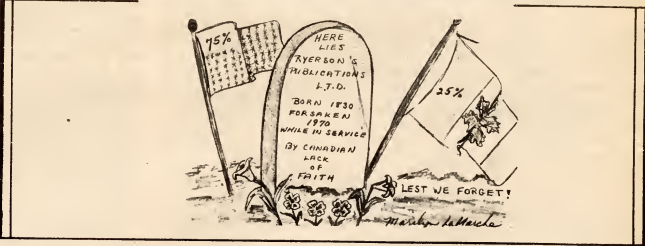 75%
HERE
LIES
RYERSON'S
PUBLICATIONS
L.T.D.
BORN 1830
FORSAKEN
1970
WHILE IN SERVICE
BY CANADIAN
LACK
OF
FAITH
25%
LEST WE FORGET!
Marilyn LaMarche